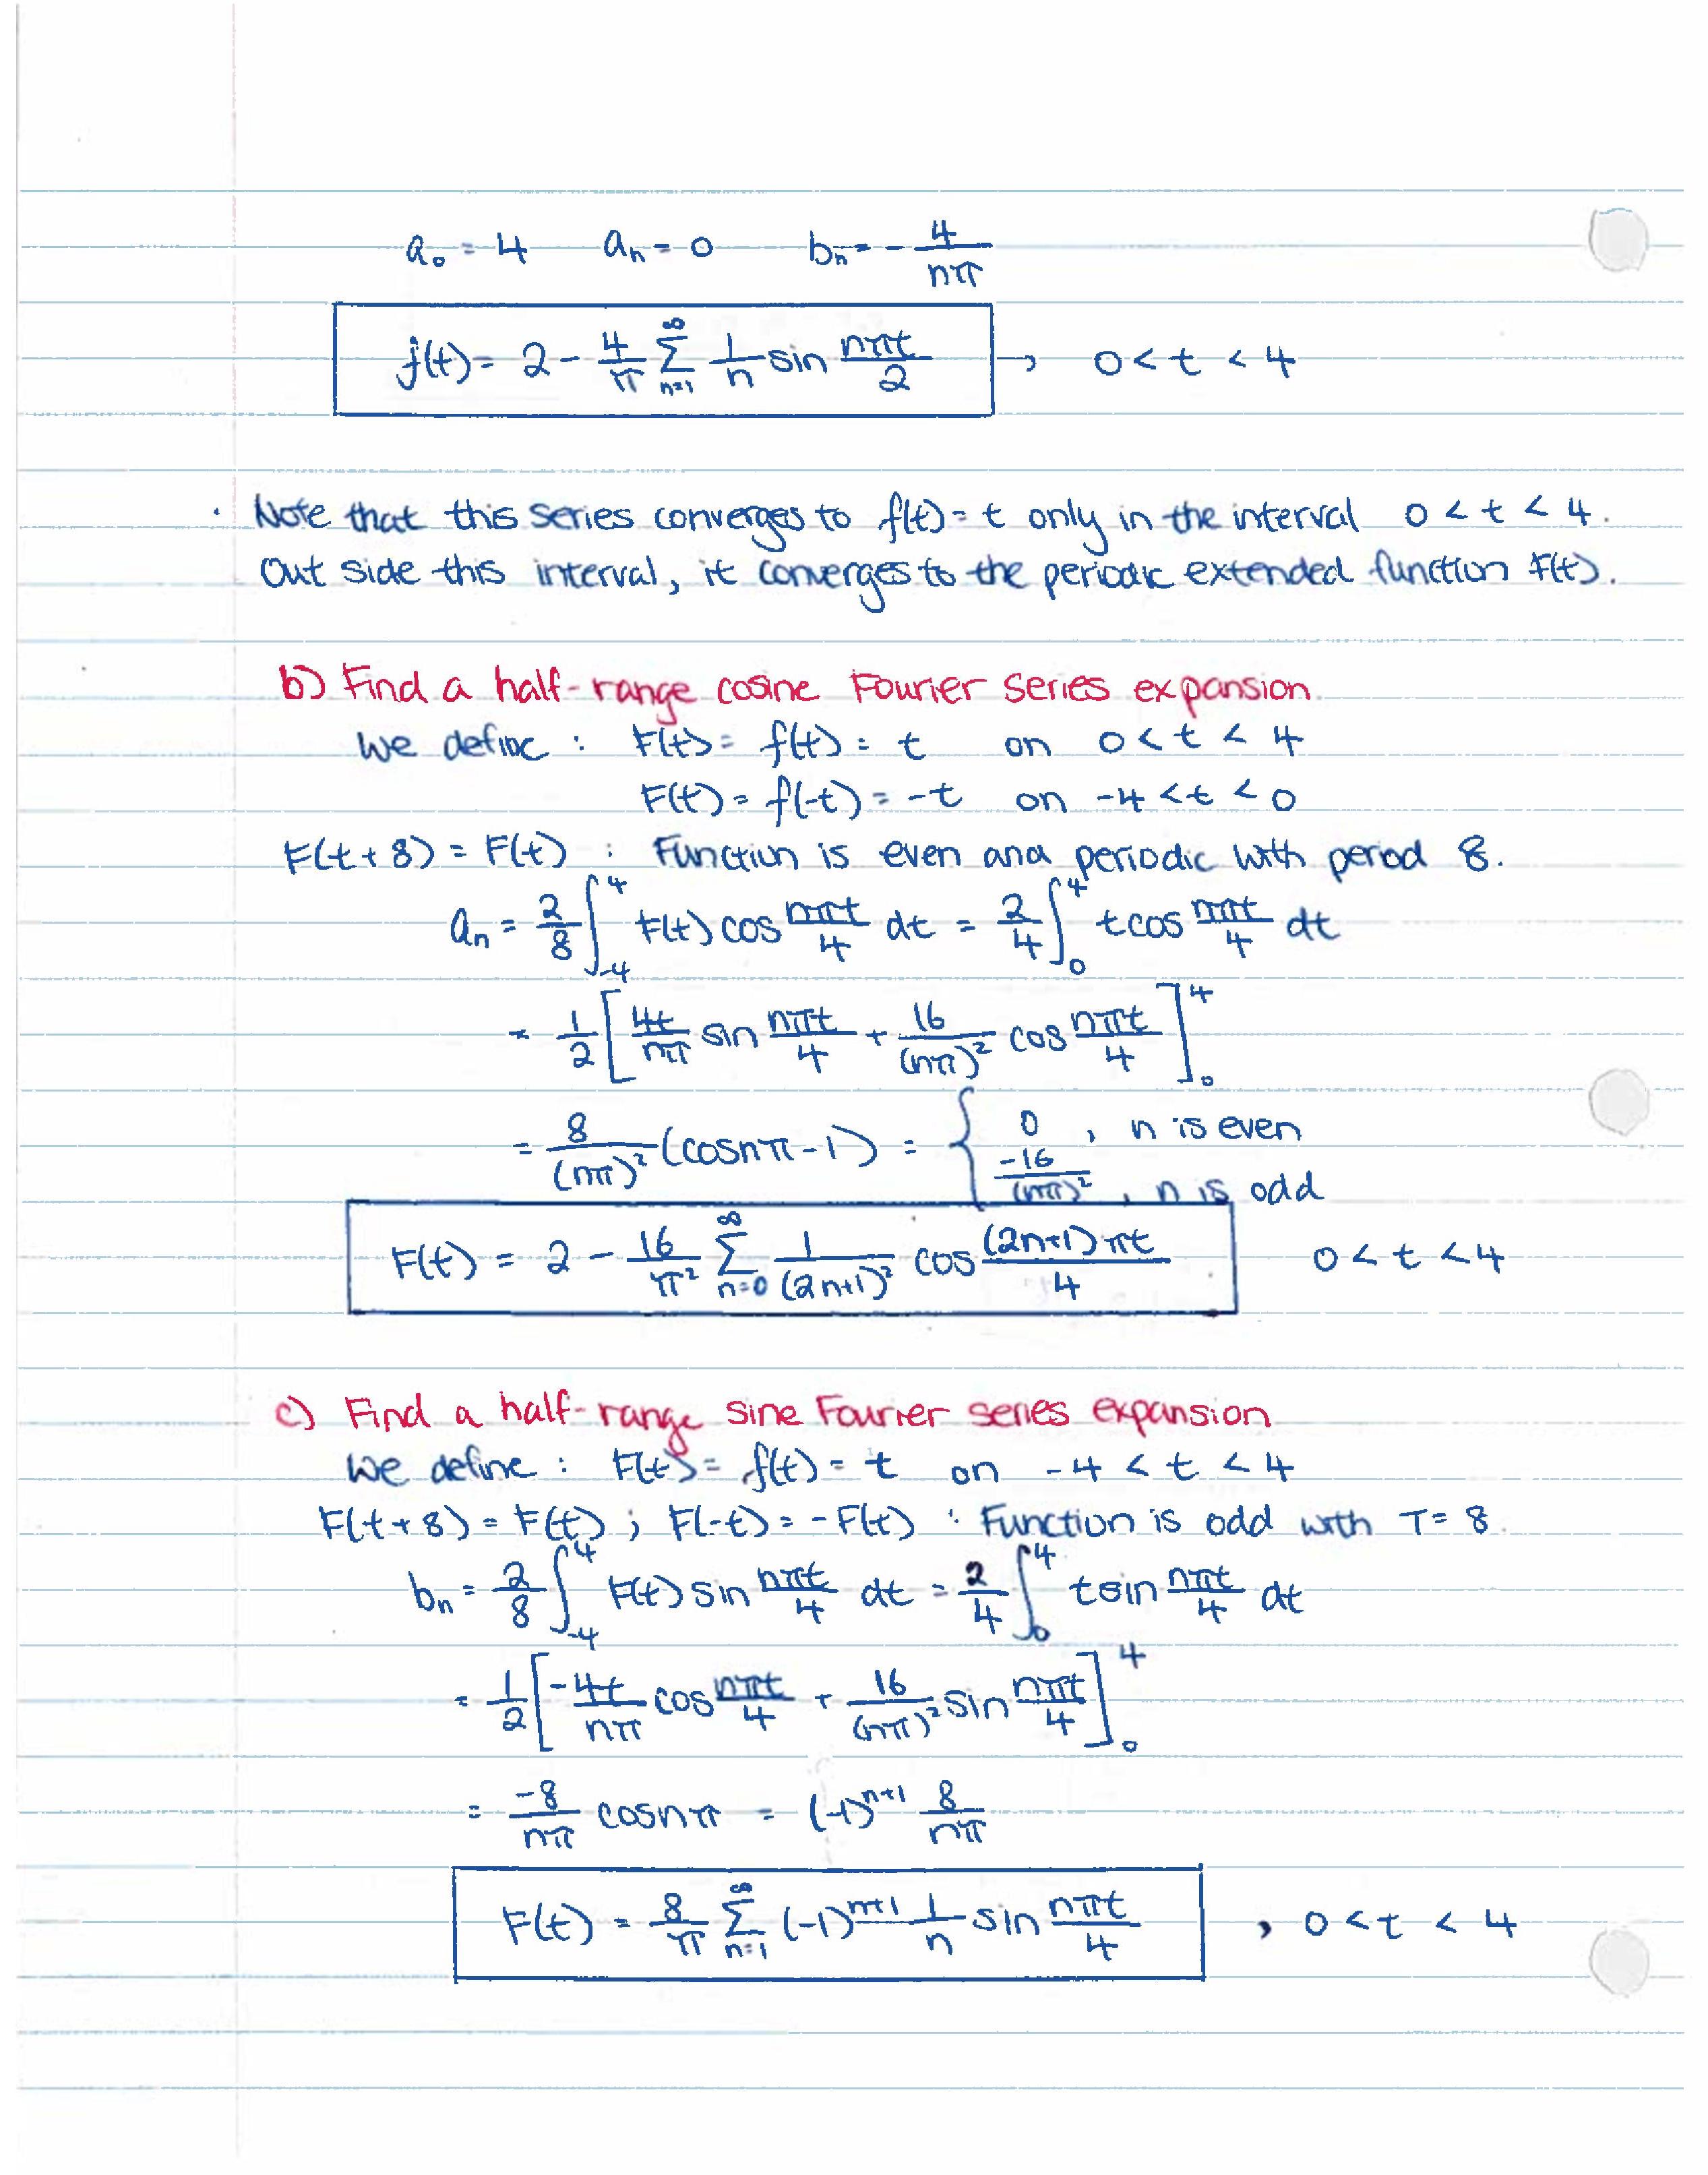 a₀ = 4 aₙ = 0 bₙ = - 4/(nπ)
f(t) = 2 - 4/π ∑_{n=1}^{∞} 1/n sin nπt/2 , 0 < t < 4
· Note that this series converges to f(t) = t only in the interval 0 < t < 4.
Out side this interval, it converges to the periodic extended function F(t).
b) Find a half-range cosine Fourier Series expansion.
We define : F(t) = f(t) = t on 0 < t < 4
F(t) = f(-t) = -t on -4 < t < 0
F(t + 8) = F(t) : Function is even and periodic with period 8.
aₙ = 2/8 ∫_{-4}^{4} F(t) cos nπt/4 dt = 2/4 ∫_{0}^{4} t cos nπt/4 dt
= 1/2 [ 4t/(nπ) sin nπt/4 + 16/(nπ)² cos nπt/4 ]_{0}^{4}
= 8/(nπ)² (cosnπ - 1) = { 0 , n is even
-16/(nπ)² , n is odd
F(t) = 2 - 16/π² ∑_{n=0}^{∞} 1/(2n+1)² cos (2n+1)πt/4 0 < t < 4
c) Find a half-range sine Fourier series expansion
We define : F(t) = f(t) = t on -4 < t < 4
F(t + 8) = F(t) ; F(-t) = -F(t) : Function is odd with T = 8.
bₙ = 2/8 ∫_{-4}^{4} F(t) sin nπt/4 dt = 2/4 ∫_{0}^{4} t sin nπt/4 dt
= 1/2 [ -4t/(nπ) cos nπt/4 + 16/(nπ)² sin nπt/4 ]_{0}^{4}
= -8/(nπ) cosnπ = (-1)ⁿ⁺¹ 8/(nπ)
F(t) = 8/π ∑_{n=1}^{∞} (-1)ⁿ⁺¹ 1/n sin nπt/4 , 0 < t < 4